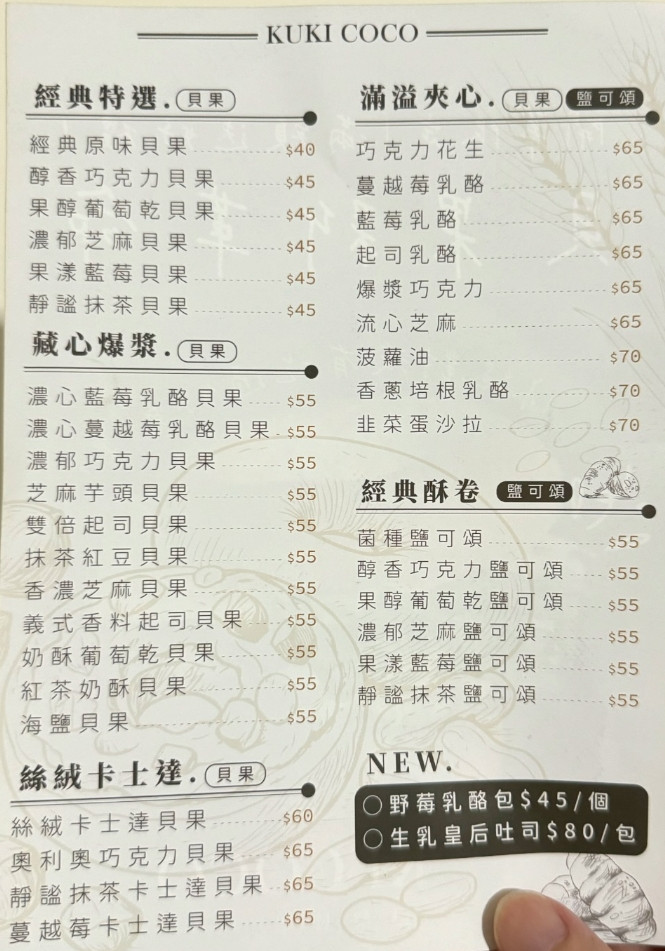 KUKI COCO
經典特選. 貝果
經典原味貝果 $40
醇香巧克力貝果 $45
果醇葡萄乾貝果 $45
濃郁芝麻貝果 $45
果漾藍莓貝果 $45
靜謐抹茶貝果 $45
藏心爆漿. 貝果
濃心藍莓乳酪貝果 $55
濃心蔓越莓乳酪貝果 $55
濃郁巧克力貝果 $55
芝麻芋頭貝果 $55
雙倍起司貝果 $55
抹茶紅豆貝果 $55
香濃芝麻貝果 $55
義式香料起司貝果 $55
奶酥葡萄乾貝果 $55
紅茶奶酥貝果 $55
海鹽貝果 $55
絲絨卡士達. 貝果
絲絨卡士達貝果 $60
奧利奧巧克力貝果 $65
靜謐抹茶卡士達貝果 $65
蔓越莓卡士達貝果 $65
滿溢夾心. 貝果 鹽可頌
巧克力花生 $65
蔓越莓乳酪 $65
藍莓乳酪 $65
起司乳酪 $65
爆漿巧克力 $65
流心芝麻 $65
菠蘿油 $70
香蔥培根乳酪 $70
韭菜蛋沙拉 $70
經典酥卷 鹽可頌
菌種鹽可頌 $55
醇香巧克力鹽可頌 $55
果醇葡萄乾鹽可頌 $55
濃郁芝麻鹽可頌 $55
果漾藍莓鹽可頌 $55
靜謐抹茶鹽可頌 $55
NEW.
○野莓乳酪包$45/個
○生乳皇后吐司$80/包